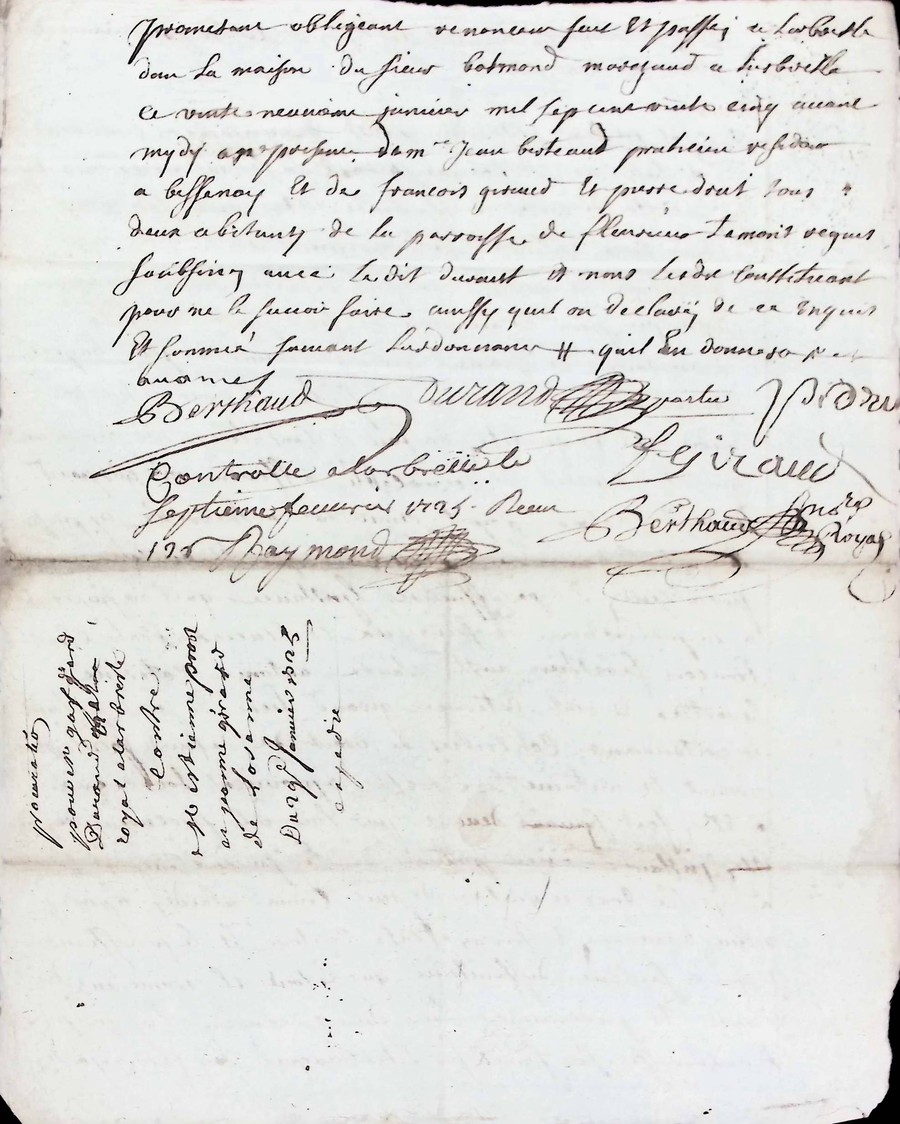 promettant obligeant renonceant fait Et passé a Larbresle
dans La maison du sieur marchand a Larbresle
Ce vinte neuvieme janvier mil sept cent vinte cinq avant
mydy en presence de me Jean berteaud praticien residant
a bessenay Et de francois giraud Et pierre droit tous
deux abitants de la parroisse de fleurieux Lemont requis
soubsinez avec Ledit durant et nous Led constituant
pour ne le scavoir faire aussy quil on declarez de ce Enquis
Et sommé suivant Lordonnance # quil En donnera
Berthaud Durand partie
fGiraud
Controllé a larbrelle le
septieme feuvrier 1725 Receu
Berthaud nore Royal
12s Raymond
procuration
pour
Durand
royal a larbresle
Contre
Estienne
girard
de Losanne
Du 29e Janvier 1725
expedié